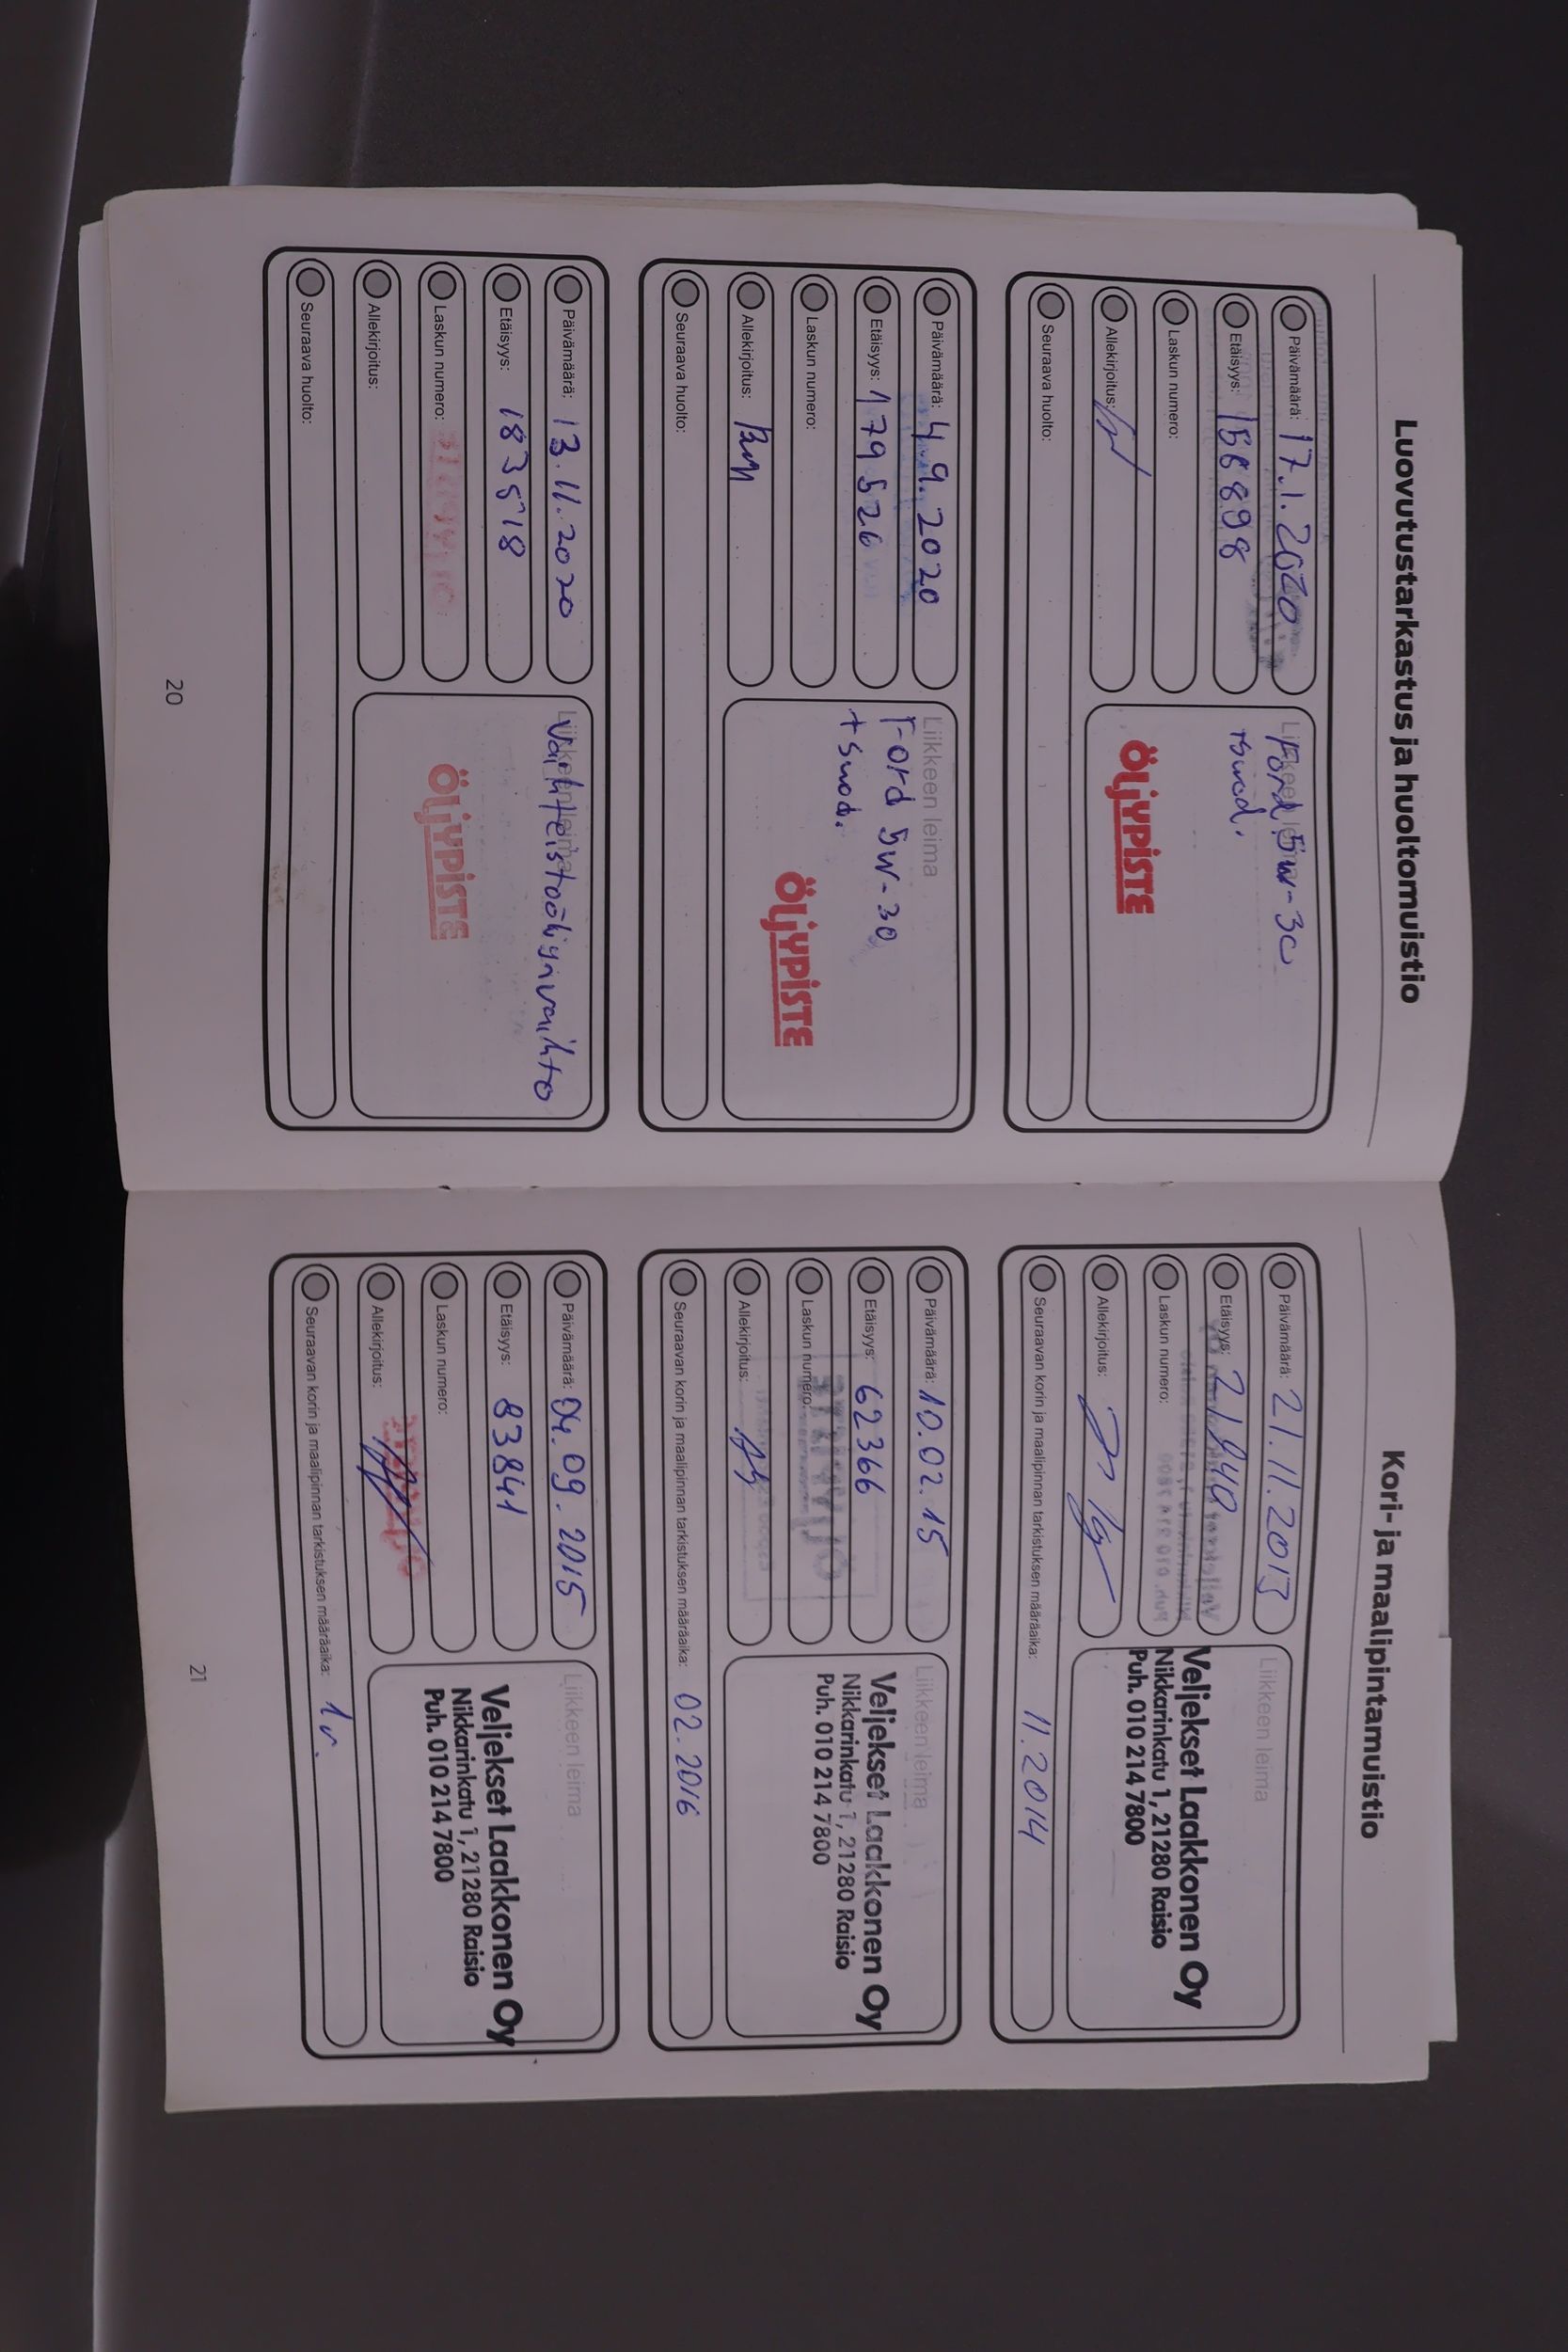 Luovutustarkastus ja huoltomuistio
Päivämäärä: 17.1.2020
Etäisyys:
Laskun numero:
Allekirjoitus:
Seuraava huolto:
Liikkeen leima
Ford 5W-30
+suod.
ÖLJYPISTE
Päivämäärä: 4.9.2020
Etäisyys: 179526
Laskun numero:
Allekirjoitus:
Seuraava huolto:
Liikkeen leima
Ford 5W-30
+suod.
ÖLJYPISTE
Päivämäärä: 13.11.2020
Etäisyys: 183518
Laskun numero:
Allekirjoitus:
Seuraava huolto:
Liikkeen leima
Vaihteistoöljynvaihto
ÖLJYPISTE
20
Kori- ja maalipintamuistio
Päivämäärä: 21.11.2013
Etäisyys:
Laskun numero:
Allekirjoitus:
Seuraavan korin ja maalipinnan tarkistuksen määräaika: 11.2014
Liikkeen leima
Veljekset Laakkonen Oy
Nikkarinkatu 1, 21280 Raisio
Puh. 010 214 7800
Päivämäärä: 10.02.15
Etäisyys: 62366
Laskun numero:
Allekirjoitus:
Seuraavan korin ja maalipinnan tarkistuksen määräaika: 02.2016
Liikkeen leima
Veljekset Laakkonen Oy
Nikkarinkatu 1, 21280 Raisio
Puh. 010 214 7800
Päivämäärä: 04.09.2015
Etäisyys: 83841
Laskun numero:
Allekirjoitus:
Seuraavan korin ja maalipinnan tarkistuksen määräaika: 1v.
Liikkeen leima
Veljekset Laakkonen Oy
Nikkarinkatu 1, 21280 Raisio
Puh. 010 214 7800
21